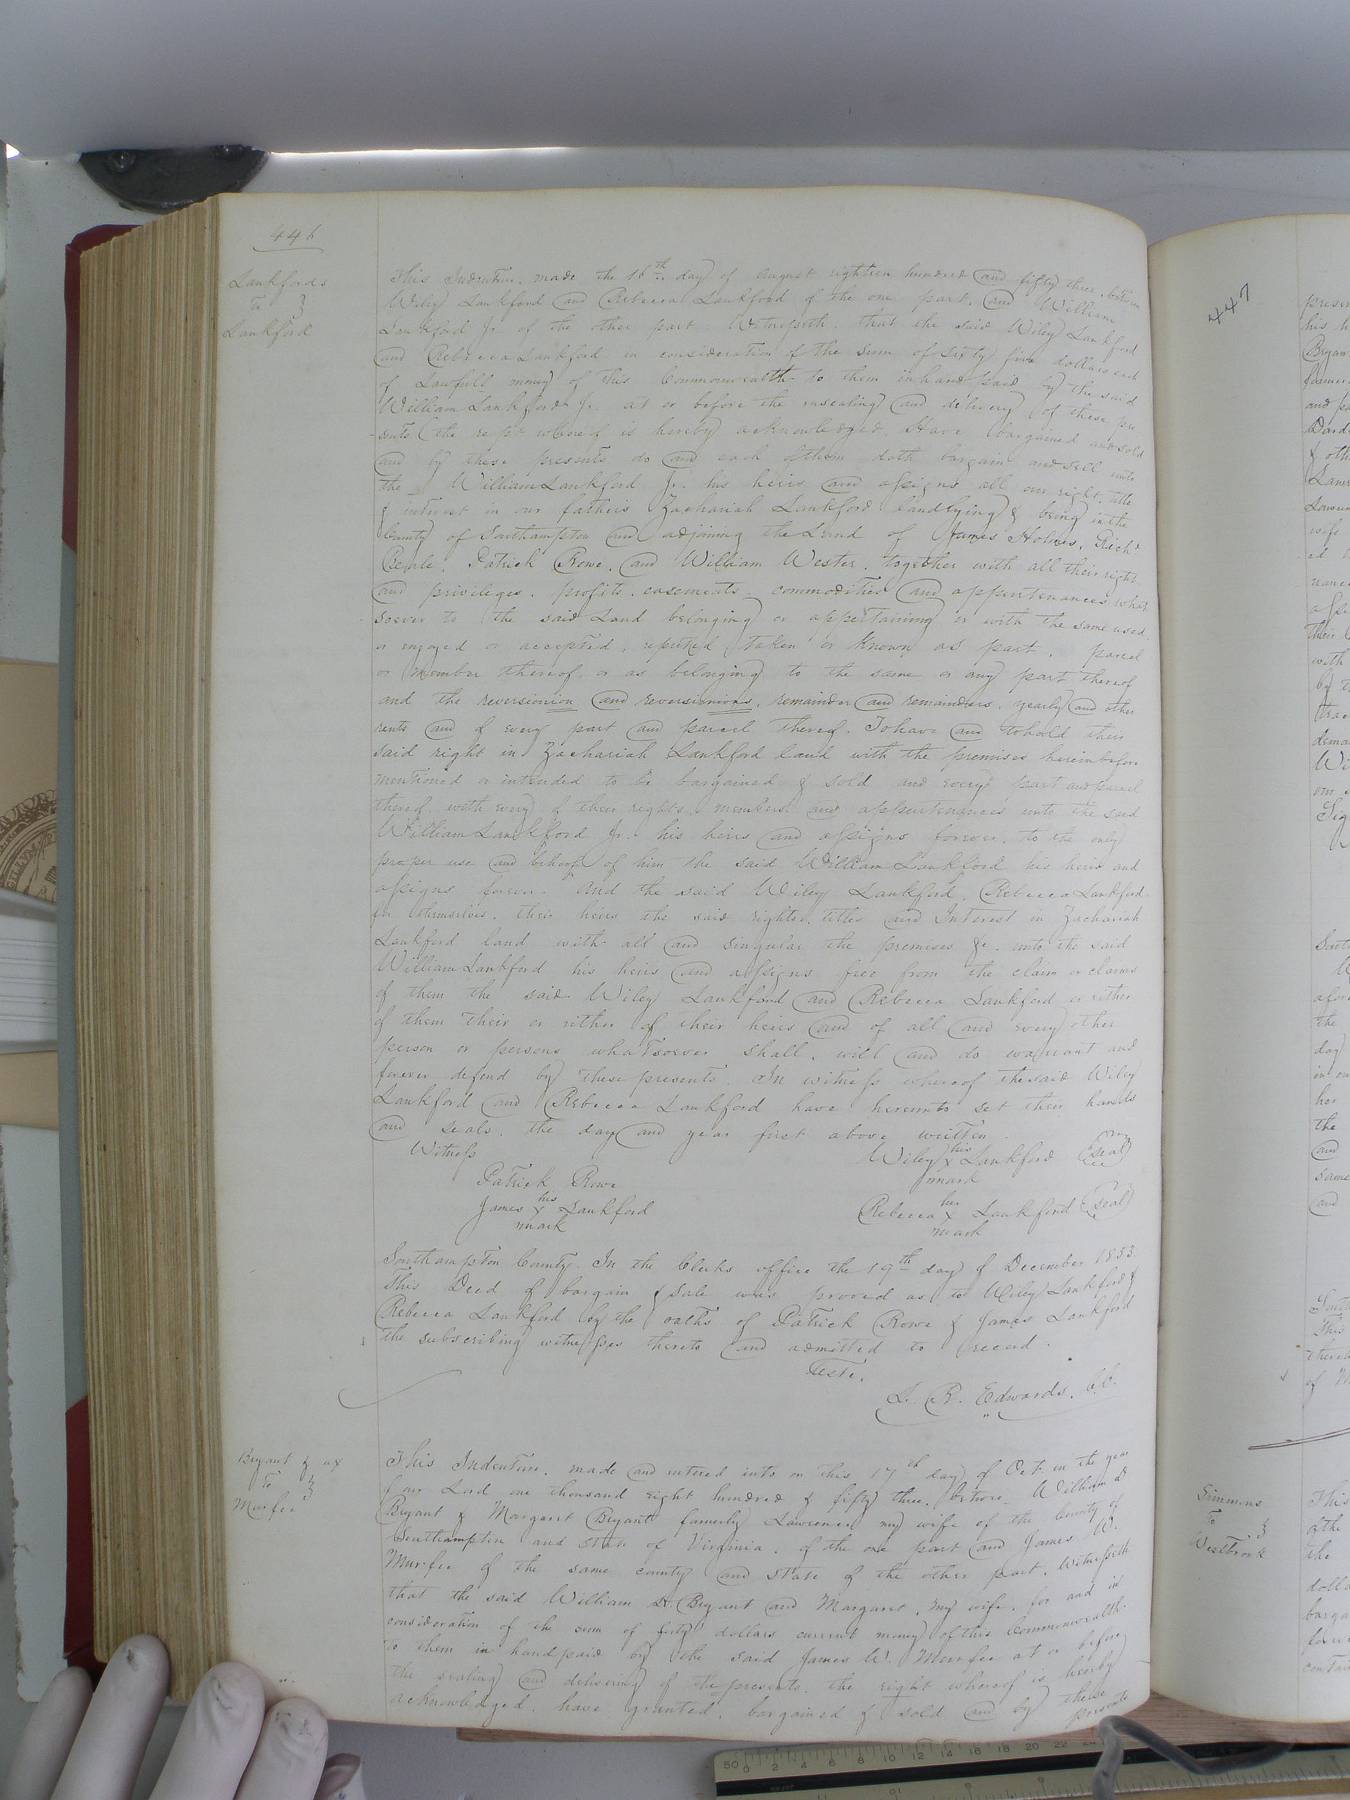 446
Lankfords
To
Lankford
This Indenture, made the 16th day of August eighteen hundred and fifty three, between
Wiley Lankford and Rebecca Lankford of the one part, and William
Lankford Jr. of the other part Witnesseth, that the said Wiley Lankford
and Rebecca Lankford in consideration of the sum of Sixty five dollars each
of Lawfull money of this Commonwealth to them in hand paid by the said
William Lankford Jr. at or before the ensealing and delivery of these pre
-sents (the re pt whereof is hereby acknowledged Have bargained and sold
and by these presents do and each of them doth bargain and sell unto
the William Lankford Jr. his heirs and assigns all our right, title
& interest in our fathers Zachariah Lankford land lying & being in the
County of Southampton and adjoining the Land of James Holmes, Richd
Beale, Patrick Rowe, and William Wester, together with all their right
and privileges, profits, easements, commodities and appurtenances what
soever to the said Land belonging or appertaining or with the same used
or enjoyed or accepted, reputed taken or known as part, parcel
or member thereof, or as belonging to the same or any part thereof
and the reversionion and reversionions, remainder and remainders, yearly and other
rents and of every part and parcel thereof. To have and to hold their
said right in Zachariah Lankford land with the premises hereinbefore
mentioned or intended to be bargained & sold and every part and parcel
thereof with every of their rights, members and appurtenances unto the said
William Lankford Jr. his heirs and assigns forever, to the only
proper use and behoof of him the said William Lankford his heirs and
assigns forever. And the said Wiley Lankford, Rebecca Lankford
for themselves, their heirs the said rights, titles and Interest in Zachariah
Lankford land with all and singular the premises &c. unto the said
William Lankford his heirs and assigns free from the claim or claims
of them the said Wiley Lankford and Rebecca Lankford or either
of them their or either of their heirs and of all and every other
person or persons whatsoever shall, will and do warrant and
forever defend by these presents. In witness whereof the said Wiley
Lankford and Rebecca Lankford have hereunto set their hands
and seals, the day and year first above written.
Witness
Wiley his x mark Lankford (seal)
Patrick Rowe
James his x mark Lankford
Rebecca her x mark Lankford (seal)
Southampton County. In the Clerks office the 19th day of December 1853.
This Deed of bargain & sale was proved as to Wiley Lankford &
Rebecca Lankford by the oaths of Patrick Rowe & James Lankford
the subscribing witnesses thereto and admitted to record.
Teste,
L. R. Edwards, C.C.
Bryant & ux
To
Murfee
This Indenture, made and entered into on this 17th day of Oct in the year
of our Lord one thousand eight hundred & fifty three, between William H
Bryant & Margaret Bryant formerly Lawrence my wife of the County of
Southampton and State of Virginia, of the one part and James W.
Murfee of the same county and State of the other part, Witnesseth
that the said William H Bryant and Margaret, my wife, for and in
consideration of the sum of fifty dollars current money of this Commonwealth
to them in hand paid by the said James W. Murfee at or before
the sealing and delivering of the presents, the right whereof is hereby
acknowledged, have granted, bargained & sold and by these
presents
447
Simmons
To
Westbrook